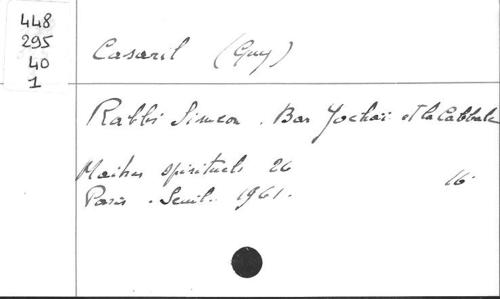 448
295
40
1
Casaril (Guy)
Rabbi Simeon. Bar Yochaï et la Cabbale
Maîtres spirituels 26
Paris. Seuil. 1961.
16